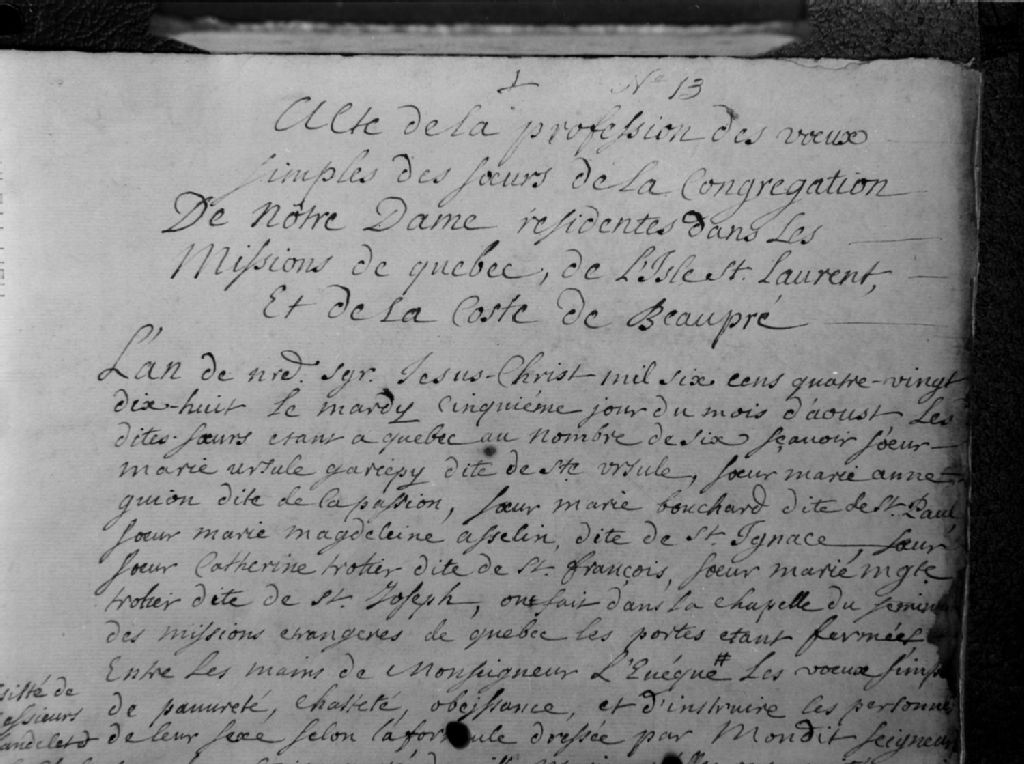 1 Nº 13
Acte de la profession des vœux
simples des sœurs de la Congregation
De Nôtre Dame residentes dans Les
Missions de quebec, de L'Isle St. Laurent,
Et de La Coste de Beaupré
L'an de nrd. sgr. Jesus-Christ mil six cens quatre-vingt
dix-huit Le mardy Cinquiéme jour du mois d'aoust Les
dites sœurs etant a quebec au nombre de six sçavoir sœur
marie ursule gariépy dite de ste ursule, sœur marie anne
guion dite de La passion, sœur marie bouchard dite de St. Paul,
sœur marie magdeleine asselin, dite de St. Ignace, sœur
sœur Catherine trotier dite de St. françois, sœur marie mgte
trotier dite de St. Joseph, ont fait dans La chapelle du
des missions etrangeres de quebec les portes etant fermées
Entre les mains de Monseigneur L'Euéque # Les vœux
de pauureté, chasteté, obeissance, et d'instruire les
de leur sexe selon la formule dressée par Mondit seigneur
de